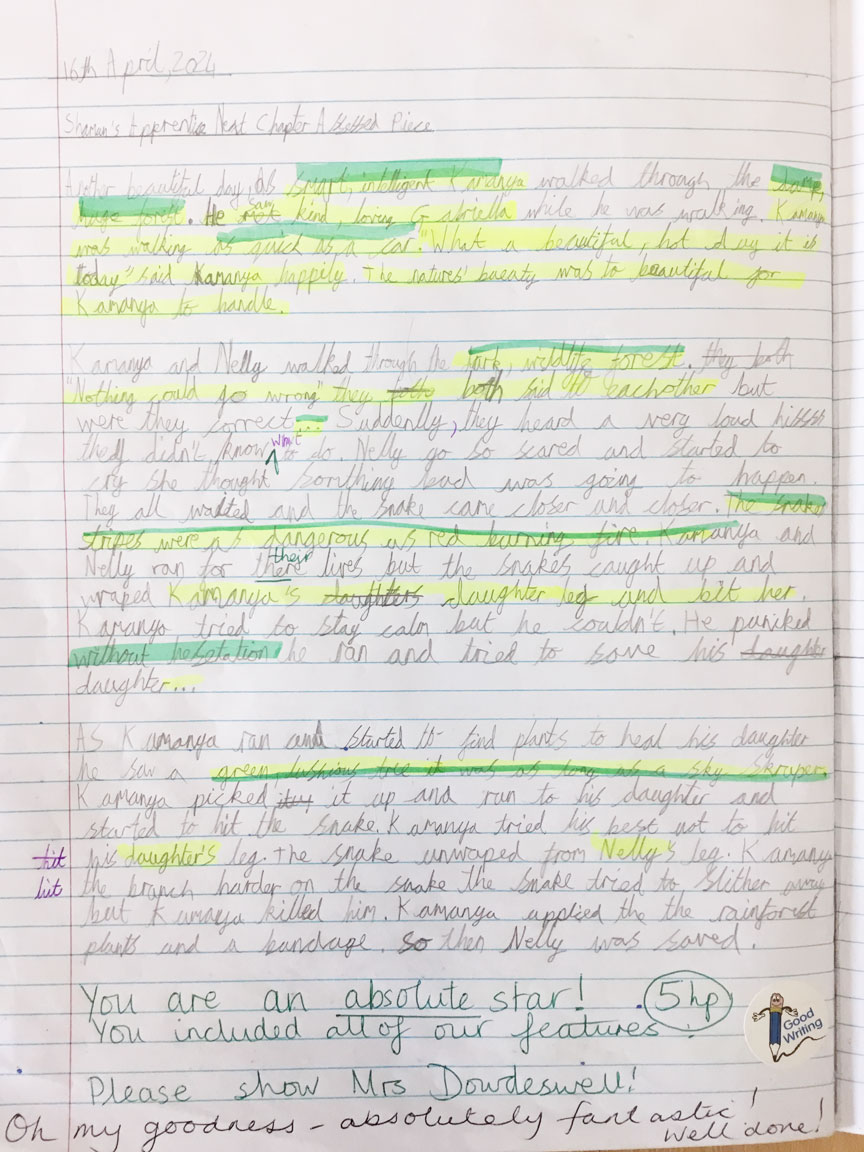 16th April, 2024
Shaman's Apprentice Next Chapter Assessed Piece
Another beautiful day, as smart, intelligent Kamanya walked through the dark,
huge forest. He saw kind, loving Gabriella while he was walking. Kamanya
was walking as quick as a car. "What a beautiful, hot day it is
today" said Kamanya happily. The natures' bueaty was to beautiful for
Kamanya to handle.
Kamanya and Nelly walked through the dark, wildlife forest. they both
"Nothing could go wrong" they both said to eachother but
were they correct... Suddenlly, they heard a very loud hissssh
they didn't know what to do. Nelly go so scared and started to
cry she thought somthing bad was going to happen.
They all waited and the snake came closer and closer. The snake
stripes were as dangerous as red burning fire. Kamanya and
Nelly ran for there their lives but the snakes caught up and
wraped Kamanya's daughters daughter leg and bit her.
Kamanya tried to stay calm but he couldn't. He paniked
without hesetation he ran and tried to save his daughter
daughter...
As Kamanya ran and started to find plants to heal his daughter
he saw a green, lushious tree it was as long as a sky skraper.
Kamanya picked it up and run to his daughter and
started to hit the snake. Kamanya tried his best not to hit
hit his daughter's leg. The snake unwraped from Nelly's leg. Kamanya
hit the branch harder on the snake the snake tried to slither away
but Kamanya killed him. Kamanya applied the the rainforest
plants and a bandage. so then Nelly was saved.
You are an absolute star! 5hp
You included all of our features!
Good Writing
Please show Mrs Dowdeswell!
Oh my goodness - absolutely fantastic!
Well done!